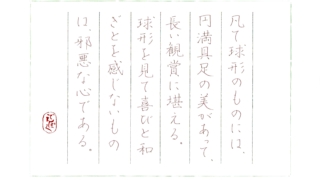 凡て球形のものには、
円満具足の美があって、
長い観賞に堪える。
球形を見て喜びと和
ぎとを感じないもの
は、邪悪な心である。